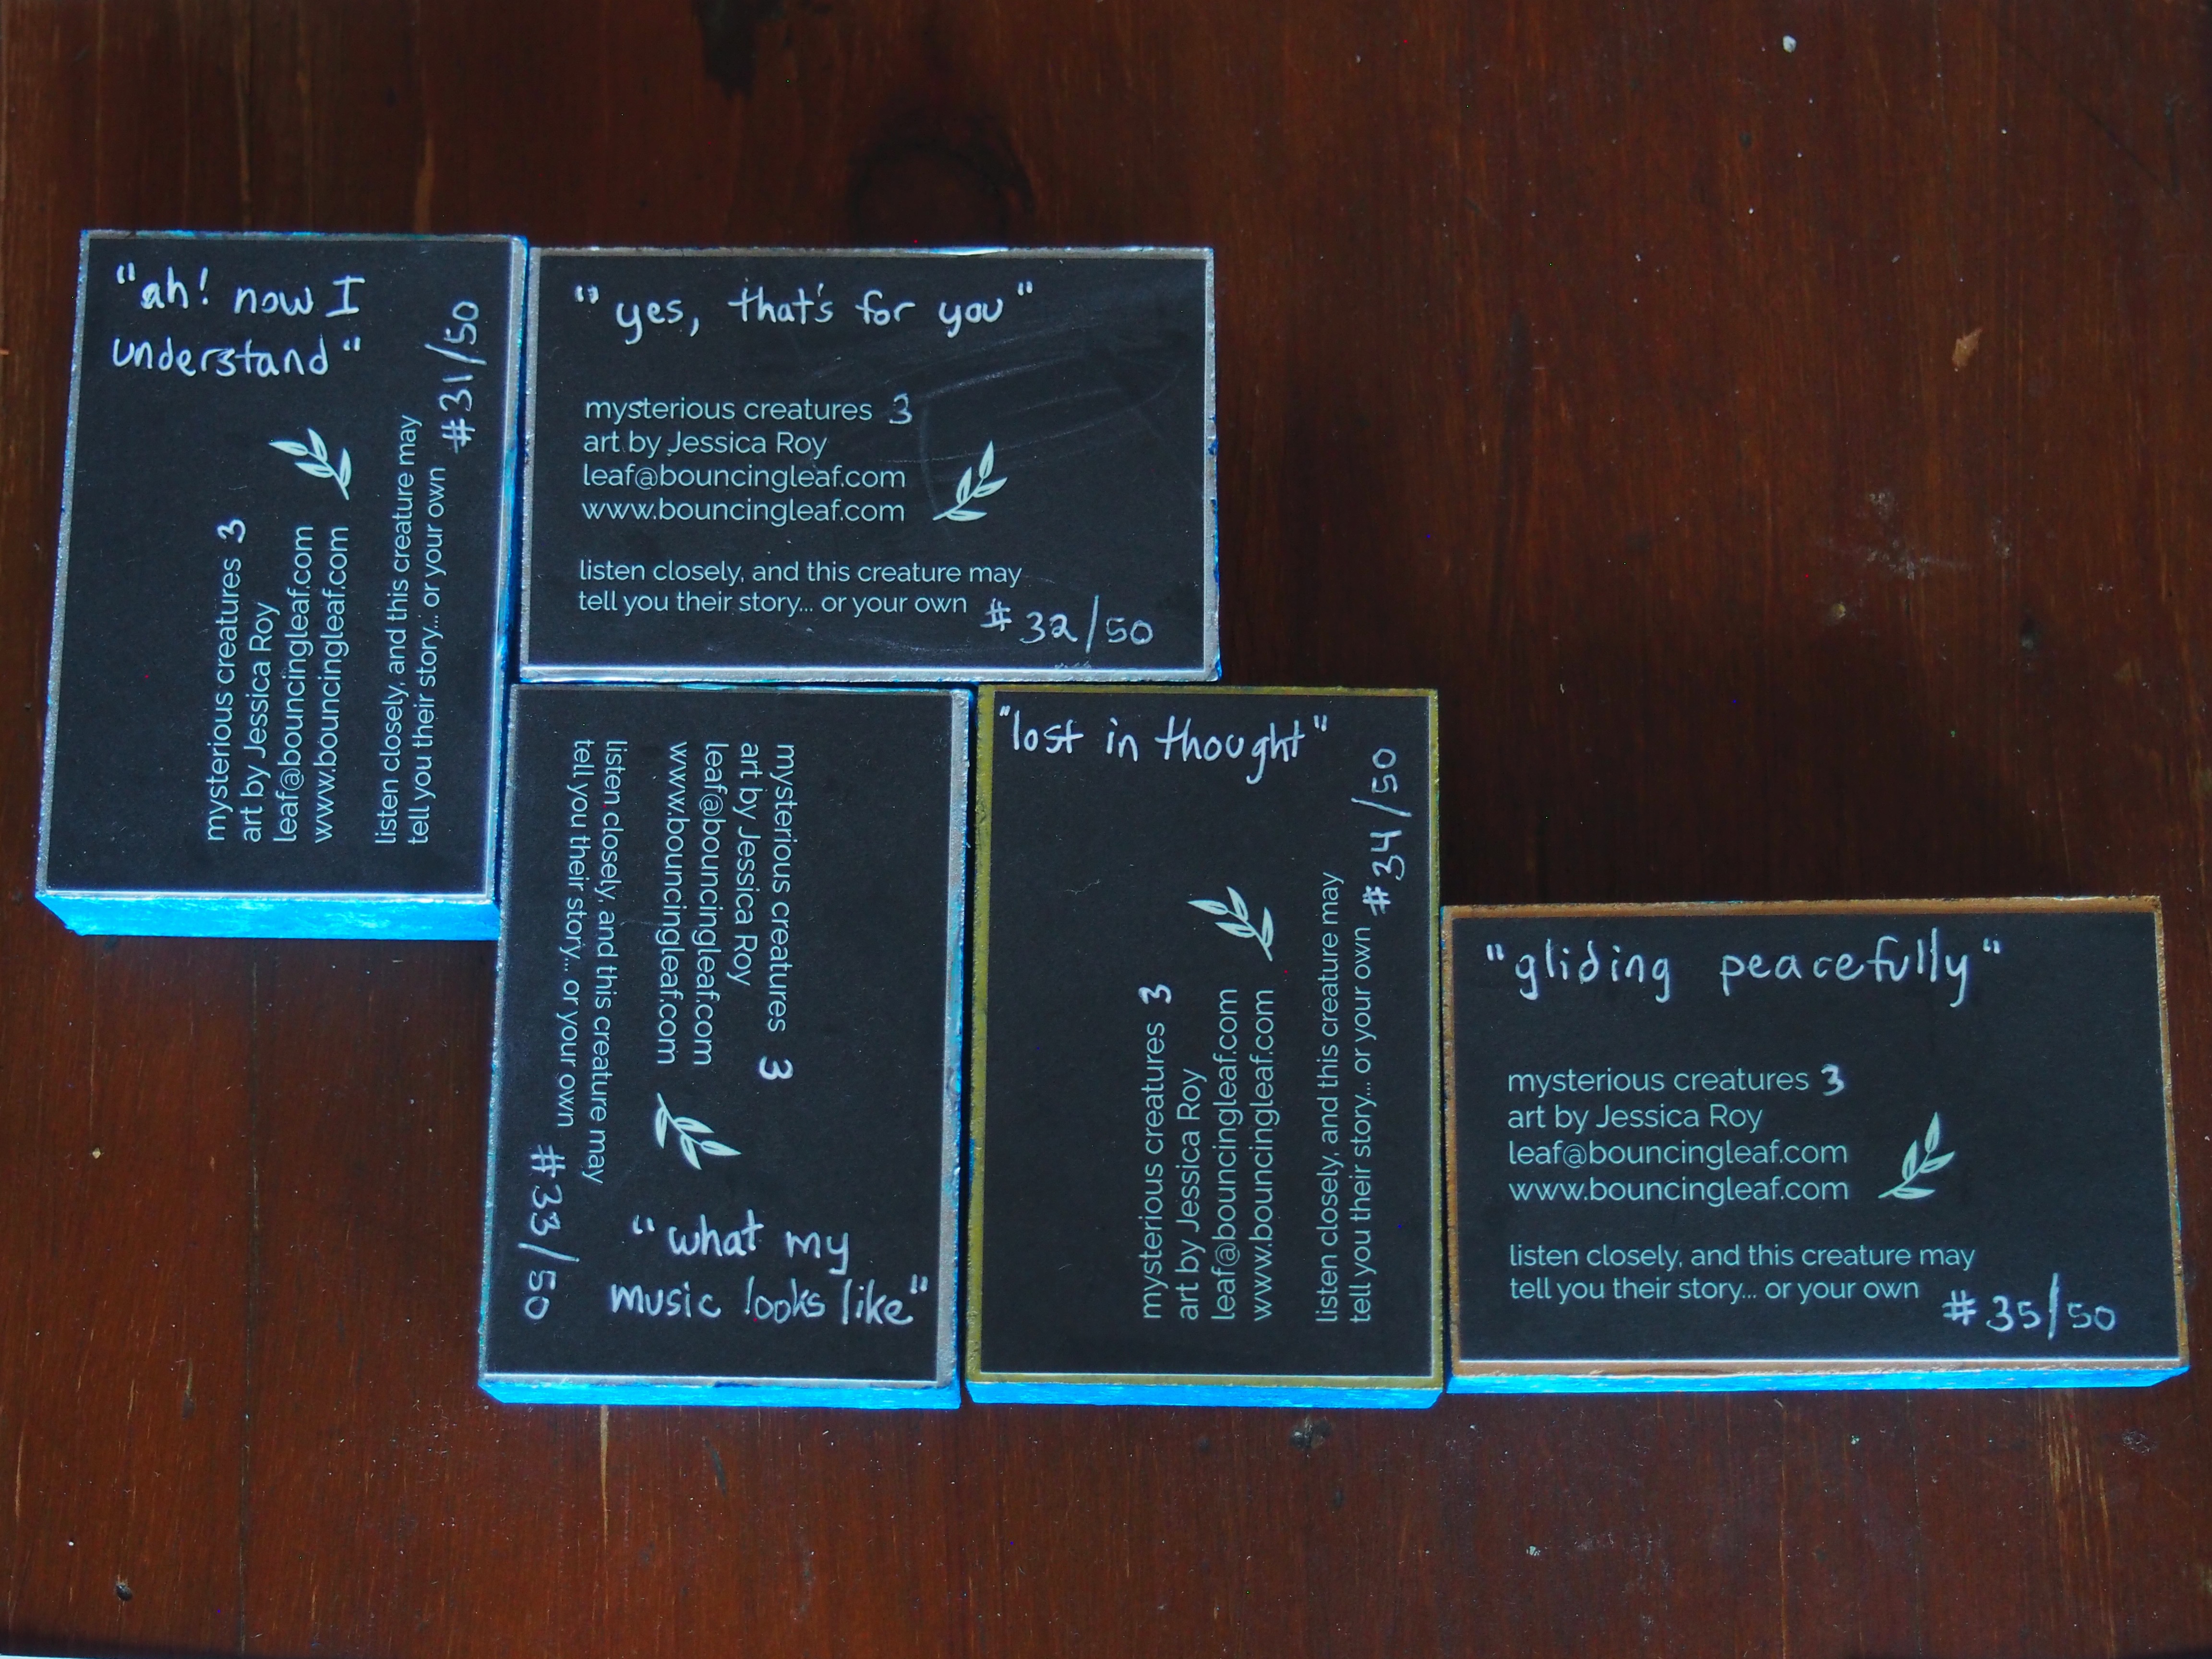 "ah! now I
understand"
mysterious creatures 3
art by Jessica Roy
leaf@bouncingleaf.com
www.bouncingleaf.com
listen closely, and this creature may
tell you their story... or your own
#31/50
"yes, that's for you"
mysterious creatures 3
art by Jessica Roy
leaf@bouncingleaf.com
www.bouncingleaf.com
listen closely, and this creature may
tell you their story... or your own
#32/50
mysterious creatures 3
art by Jessica Roy
leaf@bouncingleaf.com
www.bouncingleaf.com
listen closely, and this creature may
tell you their story... or your own
#33/50
"what my
music looks like"
"lost in thought"
mysterious creatures 3
art by Jessica Roy
leaf@bouncingleaf.com
www.bouncingleaf.com
listen closely, and this creature may
tell you their story... or your own
#34/50
"gliding peacefully"
mysterious creatures 3
art by Jessica Roy
leaf@bouncingleaf.com
www.bouncingleaf.com
listen closely, and this creature may
tell you their story... or your own
#35/50